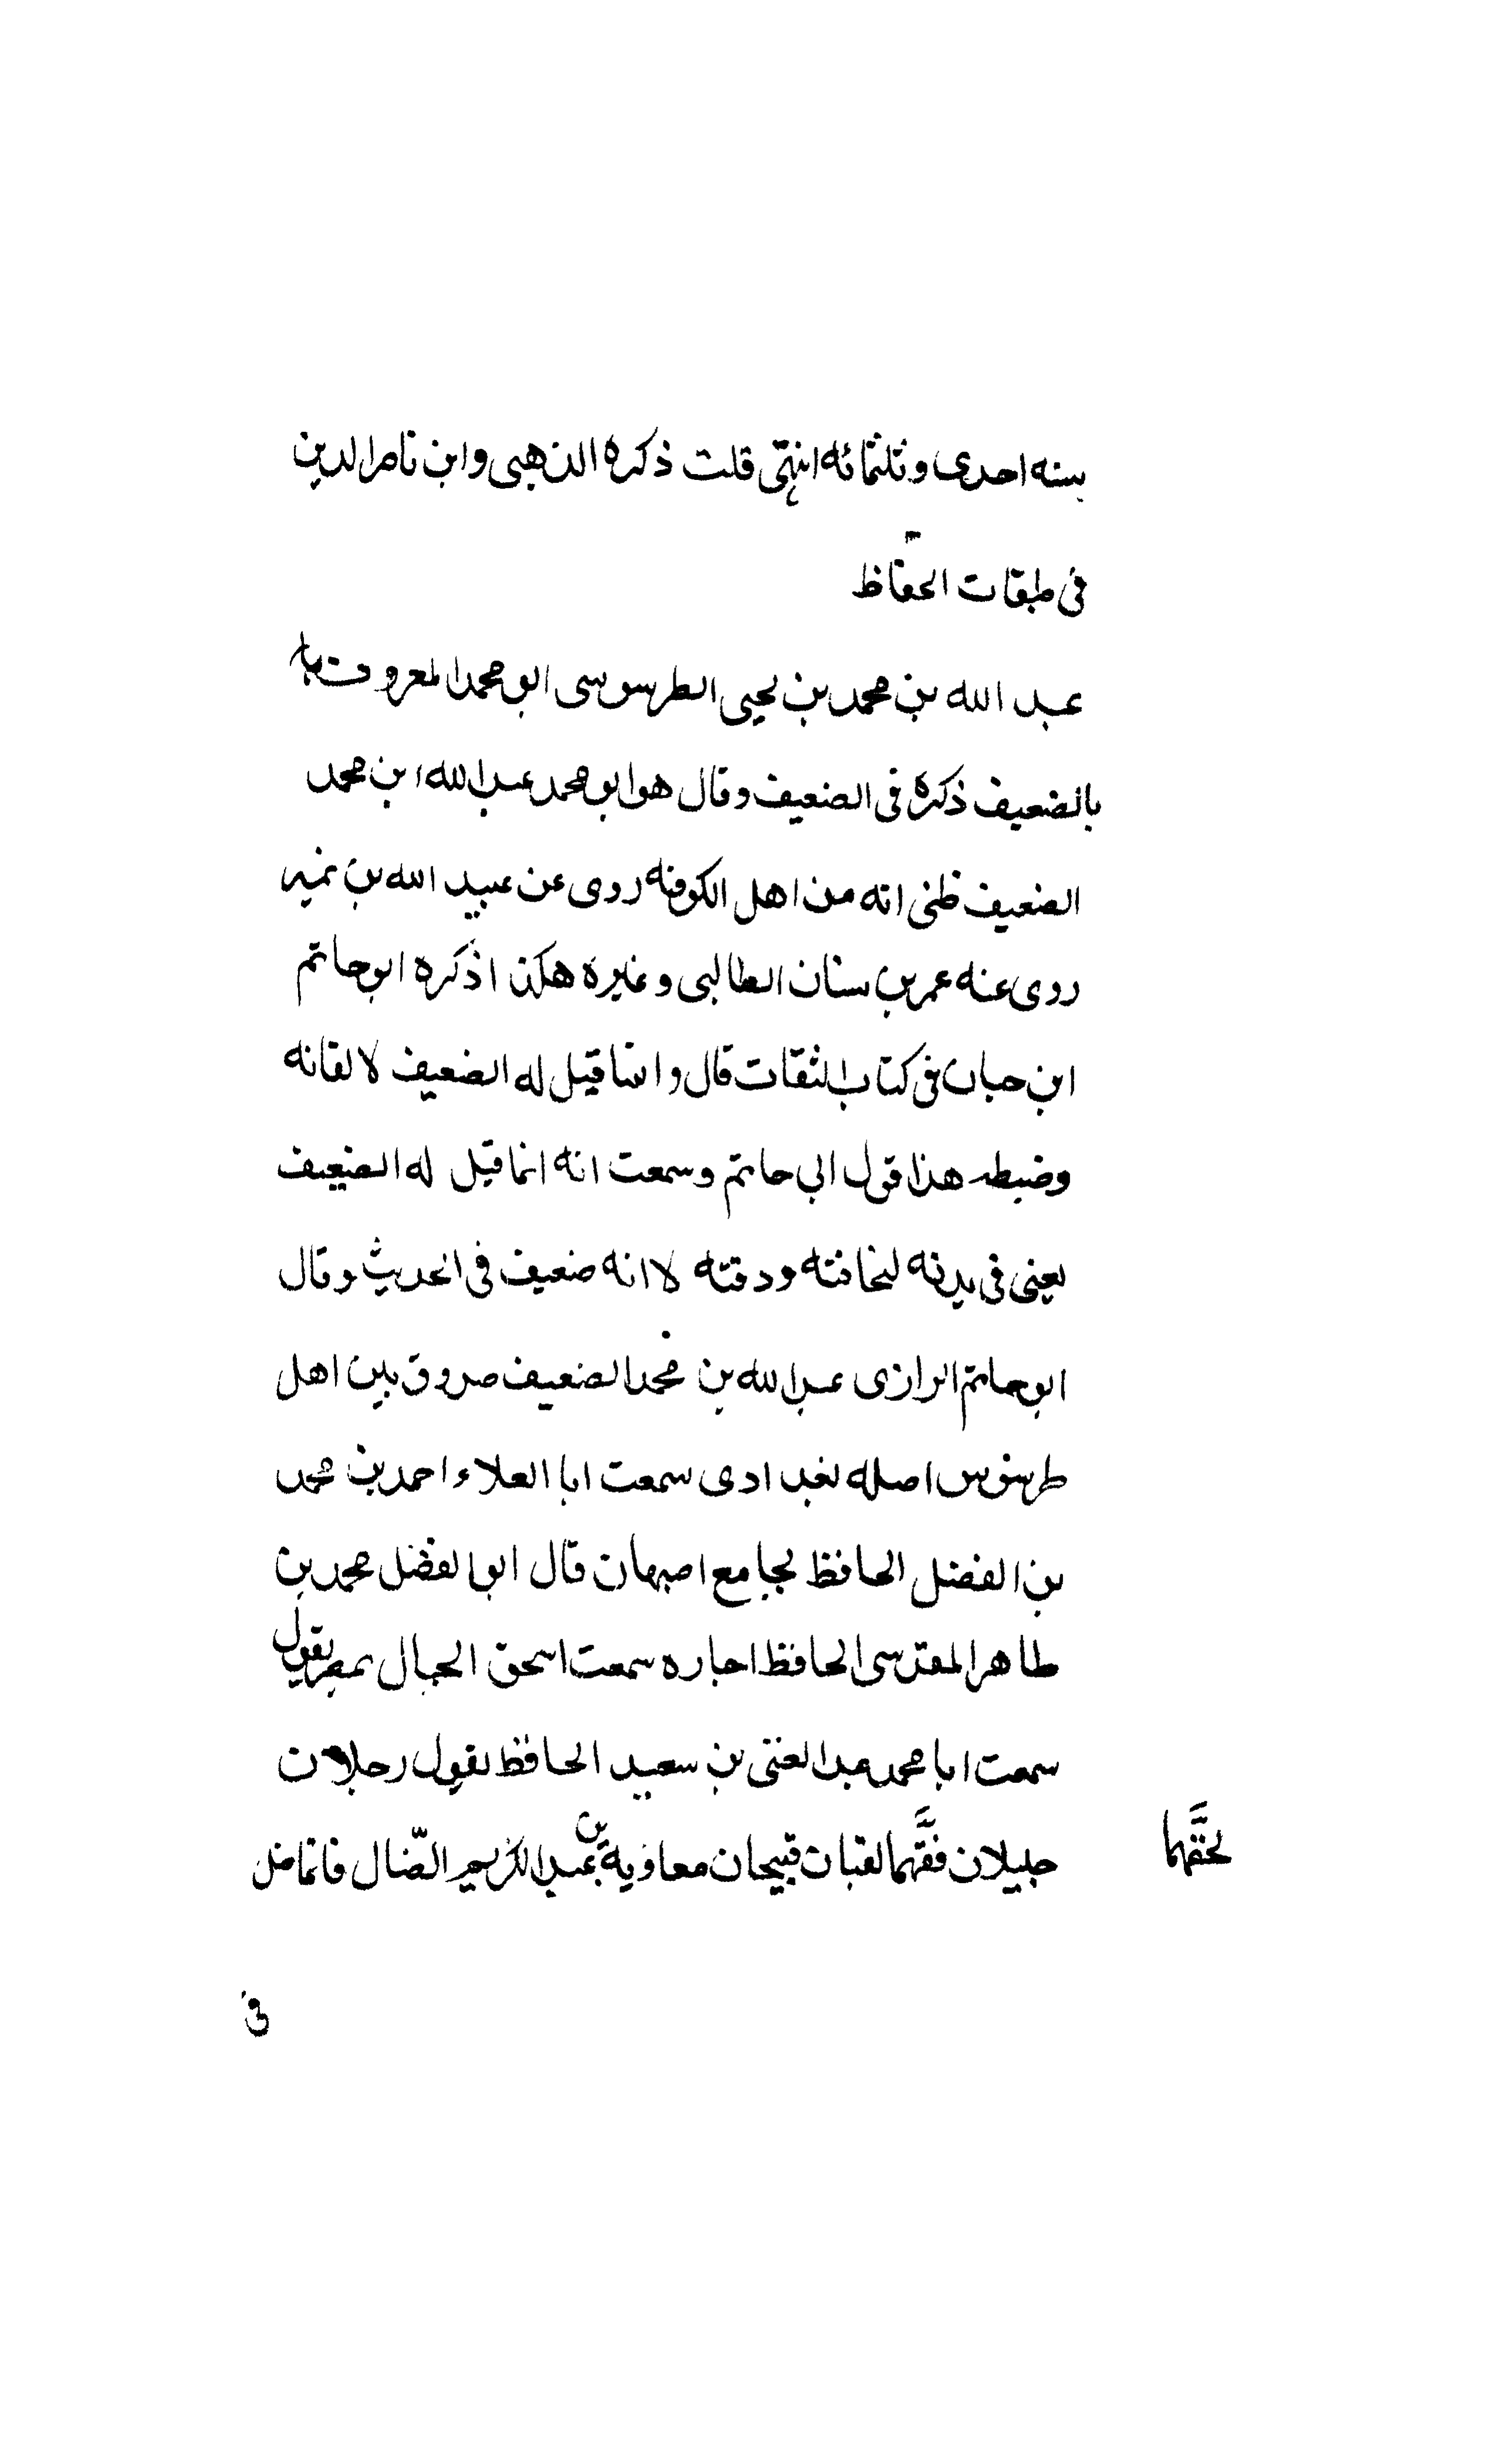 سنه احدى وثلثمائه انتهى قلت ذكره الذهبى وابن ناصر الدين
فى طبقات الحفاظ
عبد الله بن محمد بن يحيى الطرسوسى ابو محمد المعروف با
بالضعيف ذكره فى الضعيف وقال هو ابو محمد عبد الله ابن محمد
الضعيف ظنى انه من اهل الكوفه روى عن عبيد الله بن نمير
روى عنه عمر بن سنان الطالبى وغيره هكذا ذكره ابو حاتم
ابن حبان فى كتاب الثقات قال وانما قيل له الضعيف لاتقانه
وضبطه هذا قول ابى حاتم وسمعت انه انما قيل له الضعيف
يعنى فى بدنه لنحافته ودقته لا انه ضعيف فى الحديث وقال
ابو حاتم الرازى عبد الله بن محمد الضعيف صدوق بين اهل
طرسوس اصله بغدادى سمعت ابا العلاء احمد بن محمد
بن الفضل الحافظ بجامع اصبهان قال ابو الفضل محمد بن
طاهر المقدسى الحافظ اجازه سمعت اسحق الحبال بمصر يقول
سمعت ابا محمد عبد الغنى بن سعيد الحافظ يقول رجلان
جليلان فقهما لقبان قبيحان معاوية بن عبد الكريم الضّال فانما ضل
لحقهما
فى